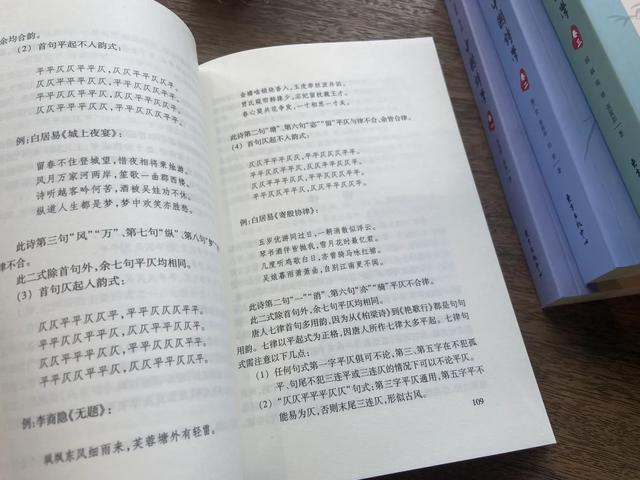 余均合韵。
(2) 首句平起不入韵式：
平平仄仄平平仄，仄仄平平仄仄平。
仄仄平平平仄仄，平平仄仄仄平平。
平平仄仄平平仄，仄仄平平仄仄平。
仄仄平平平仄仄，平平仄仄仄平平。
例：白居易《城上夜宴》：
留春不住登城望，惜夜相将秉烛游。
风月万家河两岸，笙歌一曲郡西楼。
诗听越客吟何苦，酒被吴娃劝不休。
纵道人生都是梦，梦中欢笑亦胜愁。
此诗第三句“风”“万”、第七句“纵”、第八句“梦”
律不合。
此二式除首句外，余七句平仄均相同。
(3) 首句仄起入韵式：
仄仄平平仄仄平，平平仄仄仄平平。
平平仄仄平平仄，仄仄平平仄仄平。
仄仄平平平仄仄，平平仄仄仄平平。
平平仄仄平平仄，仄仄平平仄仄平。
例：李商隐《无题》：
飒飒东风细雨来，芙蓉塘外有轻雷。
金蟾啮锁烧香入，玉虎牵丝汲井回。
贾氏窥帘韩掾少，宓妃留枕魏王才。
春心莫共花争发，一寸相思一寸灰。
此诗第二句“塘”、第六句“宓”“留”平仄与律不合，余皆合律。
(4) 首句仄起不入韵式：
仄仄平平平仄仄，平平仄仄仄平平。
平平仄仄平平仄，仄仄平平仄仄平。
仄仄平平平仄仄，平平仄仄仄平平。
平平仄仄平平仄，仄仄平平仄仄平。
例：白居易《寄殷协律》：
五岁优游同过日，一朝消散似浮云。
琴书酒伴皆抛我，雪月花时最忆君。
几度听鸡歌白日，亦曾骑马咏红裙。
吴娘暮雨萧萧曲，自别江南更不闻。
此诗第二句“一”“消”、第六句“亦”“骑”平仄不合律。
此二式除首句外，余七句平仄均相同。
唐人七律首句多用韵，因为从《柏梁诗》到《燕歌行》都是句句
用韵。七律以平起式为正格，因唐人所作七律大多平起。七律句
式需注意以下几点：
(1) 任何句式第一字平仄俱可不论，第三、第五字在不犯孤
平、句尾不犯三连平或三连仄的情况下可以不论平仄。
(2) “仄仄平平平仄仄”句式：第三字平仄通用，第五字平不
能易为仄，否则末尾三连仄，形似古风。
109